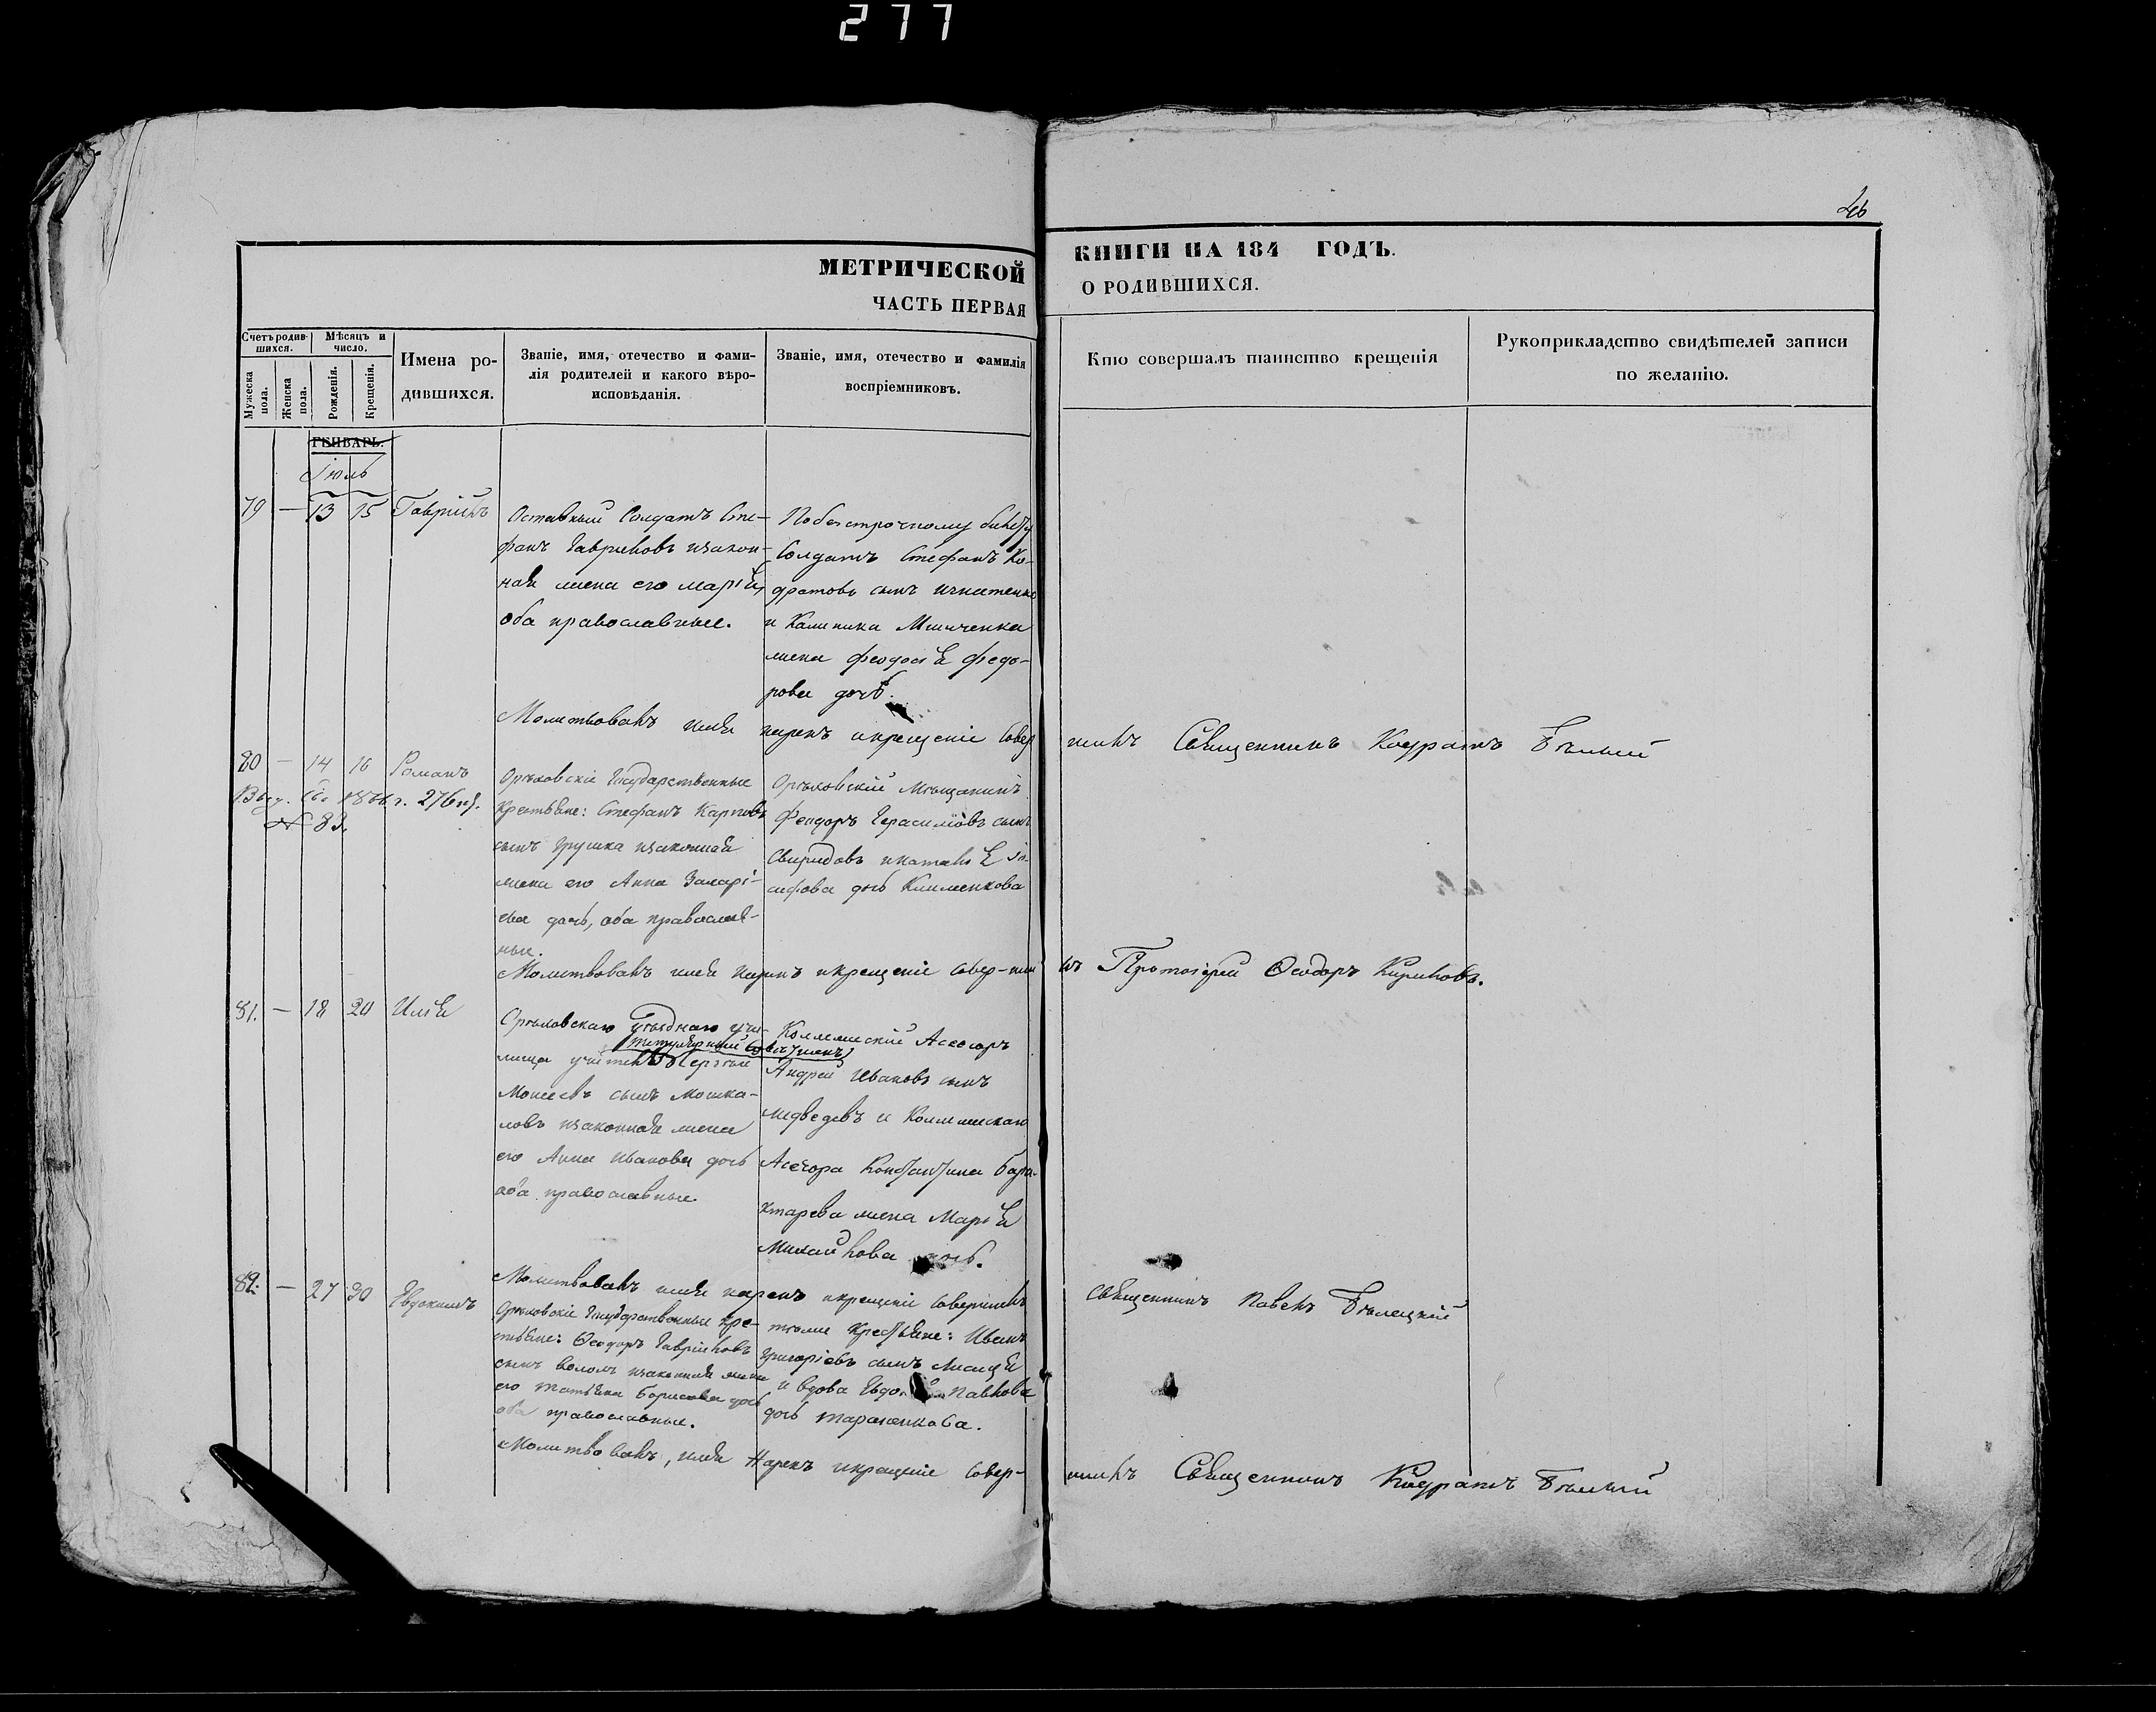 277
46
МЕТРИЧЕСКОЙ КНИГИ НА 184 ГОДЪ.
ЧАСТЬ ПЕРВАЯ О РОДИВШИХСЯ.
Счетъ родившихся.
Мужеска пола.
Женска пола.
Мѣсяцъ и число.
Рожденія.
Крещенія.
Имена родившихся.
Званіе, имя, отечество и фамилія родителей и какого вѣроисповѣданія.
Званіе, имя, отечество и фамилія воспріемниковъ.
Кто совершалъ таинство крещенія
Рукоприкладство свидѣтелей записи по желанію.
ГЕНВАРЬ.
Іюль
79 — 13 15 Гавріилъ
Оставный Солдатъ Сте-
фанъ Гавриловъ изакон-
ная жена его Марія,
оба православные.
По безсрочному билету
Солдатъ Стефанъ Ко-
дратовъ сынъ
и Калиника
жена Феодосія Федо-
рова дочь.
Молитвовалъ имя нарекъ икрещеніе совер
шилъ Священникъ Кодратъ Бѣлый
80 — 14 16 Романъ
1866 г. 276
№ 83.
Орѣховскіе Государственные
Крестьяне: Стефанъ Карповъ
сынъ Грушка изаконная
жена его Анна Захарі-
ева дочь, оба православ-
ные.
Орѣховскій Мѣщанинъ
Феодоръ Герасимовъ сынъ
Свиридовъ инаталія Іо-
сифова дочь Клименкова
Молитвовалъ имя нарекъ икрещеніе совер-ши
лъ Протоіерей Ѳеодоръ Кириловъ.
81. — 18 20 Илія
Орѣховскаго Уѣзднаго учи-
титулярный Совѣтникъ
лища учитель Сергѣй
Моисеевъ сынъ Мошка-
ловъ изаконная жена
его Анна Иванова дочь
оба православные
Коллежскій Ассесоръ
Андрей Ивановъ сынъ
Медведевъ и Коллежскаго
Асесора Константина Бара-
ктарева жена Марія
Михайлова дочь.
Молитвовалъ имя нарекъ икрещеніе совершилъ
Священникъ Павелъ Бѣлецкій
82. — 27 30 Евдокимъ
Орѣховскіе Государственные кре-
стьяне: Ѳеодоръ Гавріиловъ
сынъ Воломъ изаконная жена
его Татьяна Борисова дочь
оба православные.
тѣже Крестьяне: Иванъ
Григоріевъ сынъ Лисица
и вдова Павлова
дочь Тараненкова.
Молитвовалъ, имя Нарекъ икрещеніе совер-
шилъ Священникъ Кодратъ Бѣлый